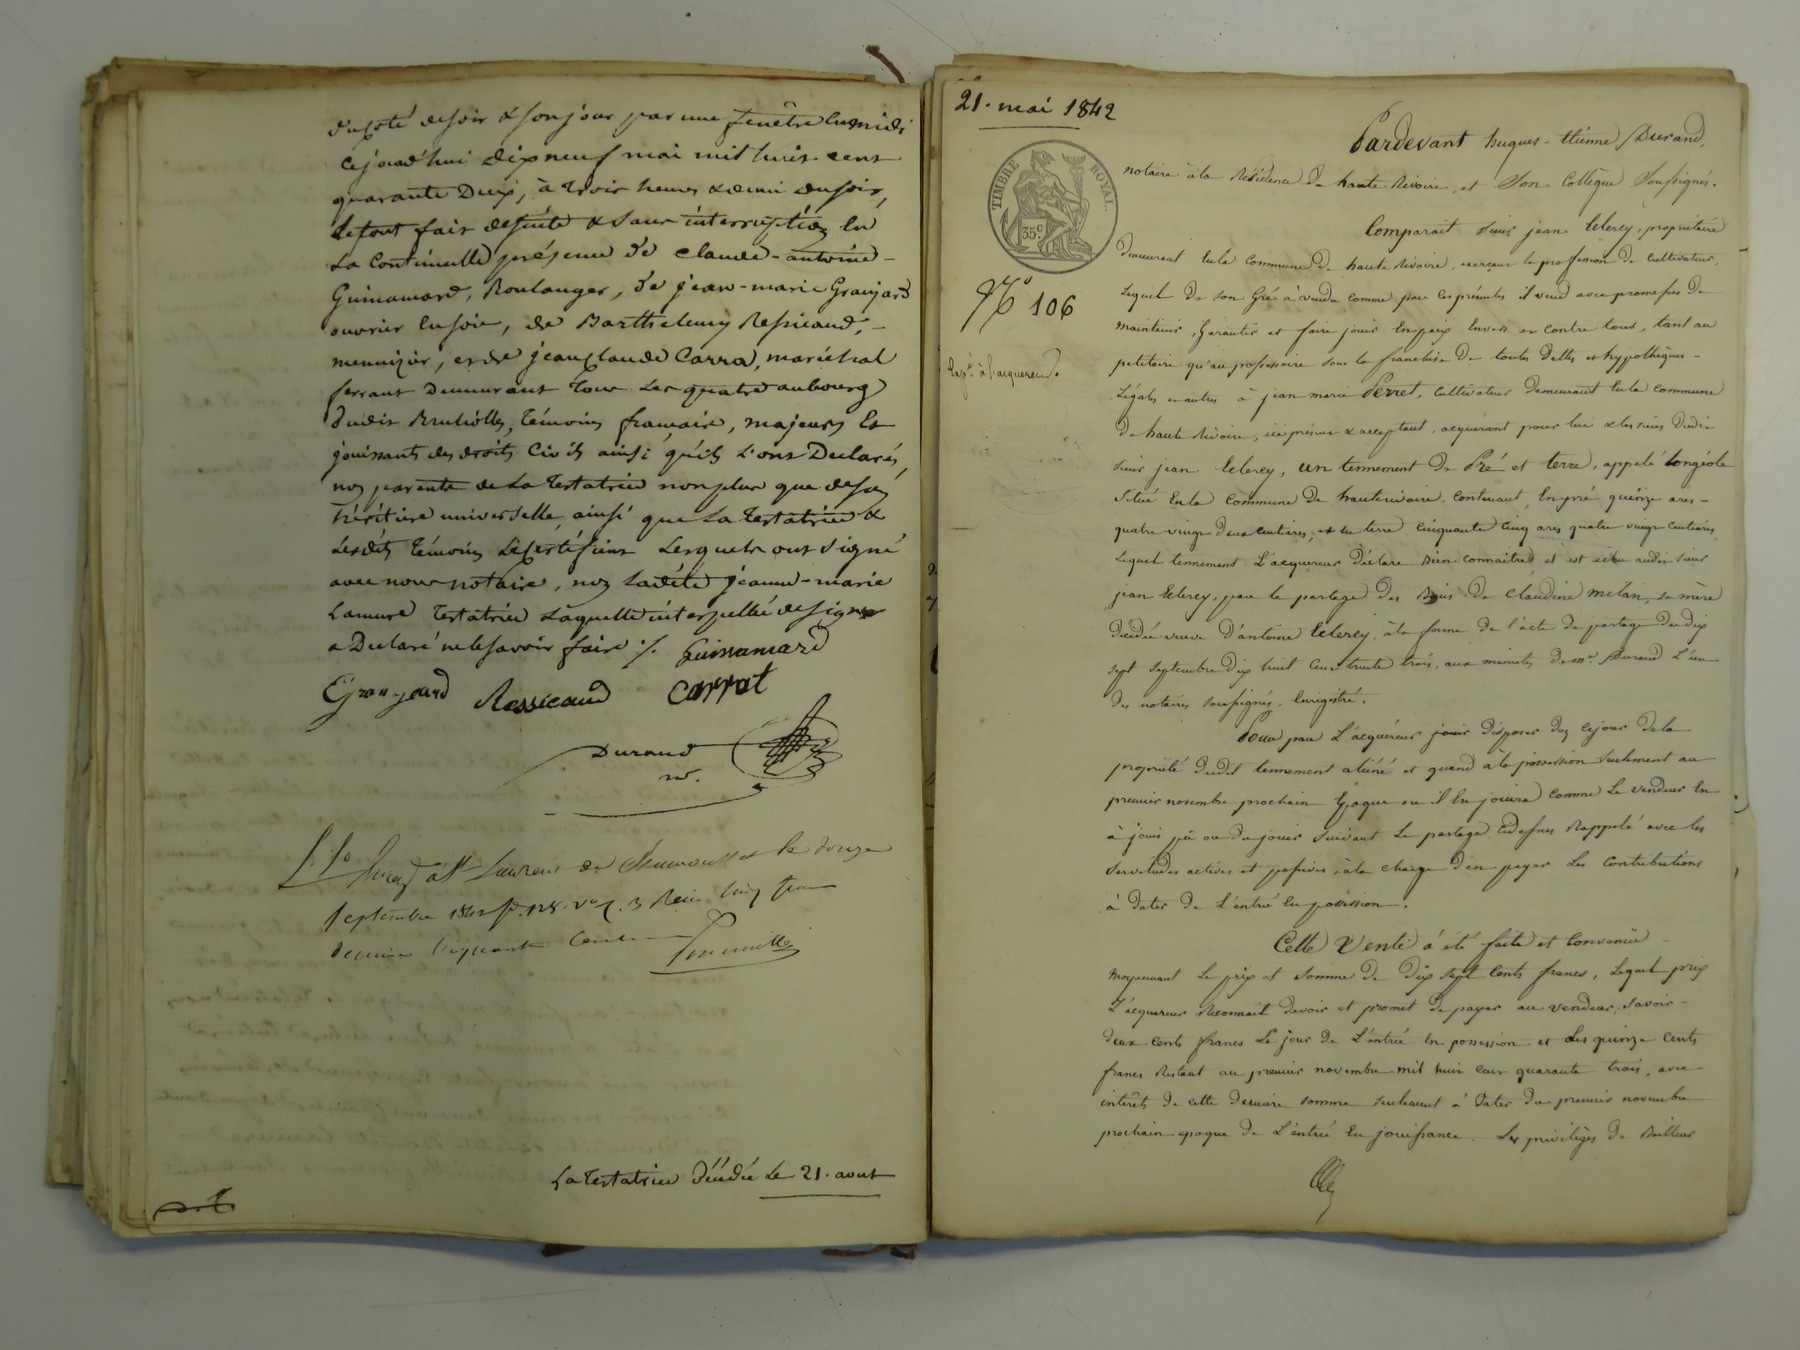 du côté de soir & son jour par une fenêtre en midi
Cejourd'hui dix neuf mai mil huit cent
quarante Deux, à trois heures & demi du soir,
Le tout fait de suite & sans interruption en
La Continuelle présence de claude-antoine-
Guinamard, Boulanger, de jean-marie Granjard
ouvrier en soie, de Barthelemy Ressicaud,-
menuizier, et de jean claude Carra, maréchal
ferrant Demeurant tous Les quatre au bourg
dudit Brulioles, témoins français, majeurs Et
jouissants des droits Civils ainsi qu'ils L'ont Déclarés,
non parents de La Testatrice non plus que de son
héritière universelle, ainsi que La Testatrice &
Lesdits témoins Le Certifient Lesquels ont signé
avec nous notaire, non Ladite jeanne-marie
Lamure Testatrice Laquelle interpellée de signer
a Déclaré ne le savoir faire ./. Guinamard
Granjard Ressicaud Carrat
Durand
nre.
Enreg. à St Laurent de Chamousset le douze
Septembre 1842 fo. 128. Vo C. 3 Reçu cinq francs
décime cinquante centimes
La Testatrice Décédée Le 21. aout
21. mai 1842
TIMBRE ROYAL.
35c
No 106
Exp.on à l'acquereur.
Pardevant hugues-étienne Durand,
notaire à la Résidence de haute Rivoire, et Son Collègue Soussignés.
Comparait Sieur jean Clerey, propriétaire
demeurant en la Commune de haute Rivoire, exerçant la profession de Cultivateur,
Lequel de son Gré à vendu comme par ces présentes il vend avec promesses de
maintenir, Garantir et faire jouir En paix Envers et contre tous, tant au
petitoire qu'au possessoire sous la franchise de toutes dettes et hypothèques-
Légales et autres à jean marie Perret, Cultivateur demeurant en la commune
de haute Rivoire, ici présent & acceptant, acquérant pour lui & les siens Dudit
sieur jean Clerey, un tennement de Pré et terre, appelé Longéole
Situé En la Commune de hauterivoire, contenant, En pré quinze ares-
quatre vingt deux centiares, et en terre cinquante cinq ares quatre vingt centiares,
Lequel tennement L'acquereur Déclare Bien connaitre et est échu audit sieur
jean Clerey, par le partage des Biens de Claudine Melan, sa mère
décédée veuve D'antoine Clerey, à la forme de l'acte de partage du dix
sept septembre Dix huit Cent trente trois, aux minutes de Me. Durand L'un
des notaires soussignés, Enrégistré.
Pour par L'acquéreur jouir disposer dez cejour de la
propriété dudit tennement aliéné et quand à la possession seulement au
premier novembre prochain Epoque ou il En jouira comme Le vendeur En
à joui pû ou du jouir suivant Le partage cidessus Rappelé avec les
servitudes actives et passives, à la charge D'en payer Les Contributions
à Dater de L'entrée En possession.
Cette Vente à été faite et Convenüe
moyennant Le prix et Somme de Dix sept Cents francs, Lequel prix
L'acquereur Reconnait Devoir et promet de payer au vendeur, Savoir-
deux Cents francs Le jour de L'entrée En possession et Les quinze Cents
francs Restant au premier novembre mil huit cent quarante trois, avec
intérêts de cette dernière somme seulement à Dater du premier novembre
prochain epoque de L'entrée En jouissance. Les privilèges de Bailleur